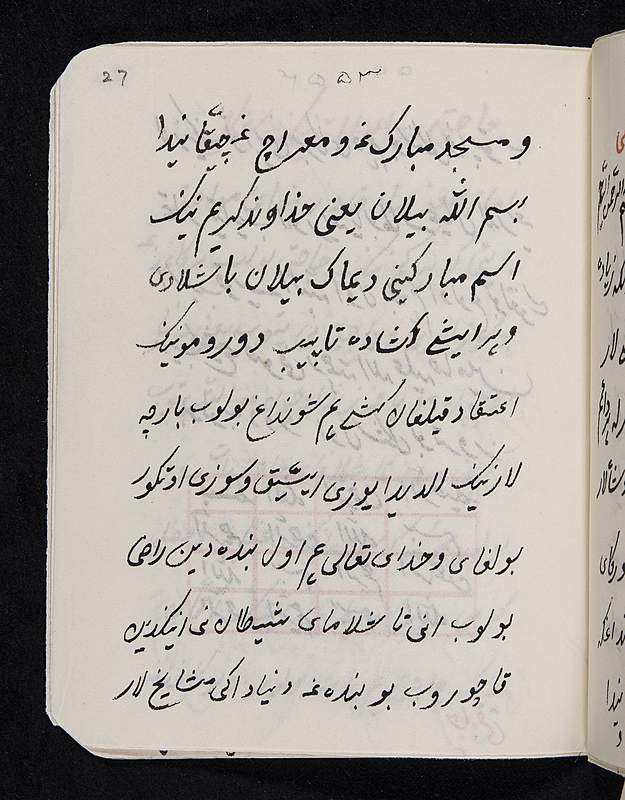 27
۵۳
و مسجد مبارک غه و معراج غه چیقّانیدا
بسم اللّه بیلان یعنی خداوند کریم نیک
اسم مبارکینی دیماک بیلان باشلادی
و هر ایشع کشاده تاپیب دورو مونیک
اعتقاد قیلغان کشی هم شونداغ بولوب بارچه
لارنیک الدیدا یوزی ایسّیق و سوزی اوتکور
بولغای و خدای تعالی هم اول بنده دین راضی
بولوب انی تاشلامای شیطان نی ایکندین
قاچوروب بو بنده غه دنیاداکی مشایخ لار